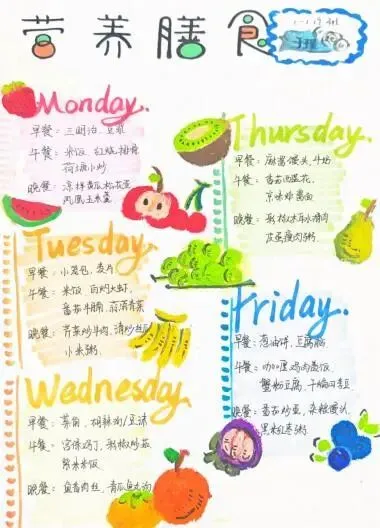 营养膳食
Monday.
早餐：三明治、豆浆
午餐：米饭、红烧排骨
荷塘小炒
晚餐：凉拌黄瓜松花蛋
凤凰玉米羹
Tuesday.
早餐：小笼包、麦片
午餐：米饭 白灼大虾
番茄牛腩
晚餐：芹菜炒牛肉、清炒丝瓜
小米粥
Wednesday.
早餐：胡辣汤/豆沫
午餐：宫保鸡丁、彩椒炒茄
紫米米饭
晚餐：鱼香肉丝、青瓜鱼丸汤
Thursday.
早餐：麻酱馒头、牛奶
午餐：番茄鸡蛋花、
京味炸酱面
晚餐：
皮蛋瘦肉粥.
Friday.
早餐：葱油饼、豆腐脑
午餐：咖喱鸡肉盖饭
蟹粉豆腐、干煸四季豆
晚餐：番茄炒蛋、杂粮馒头、
黑米红枣粥